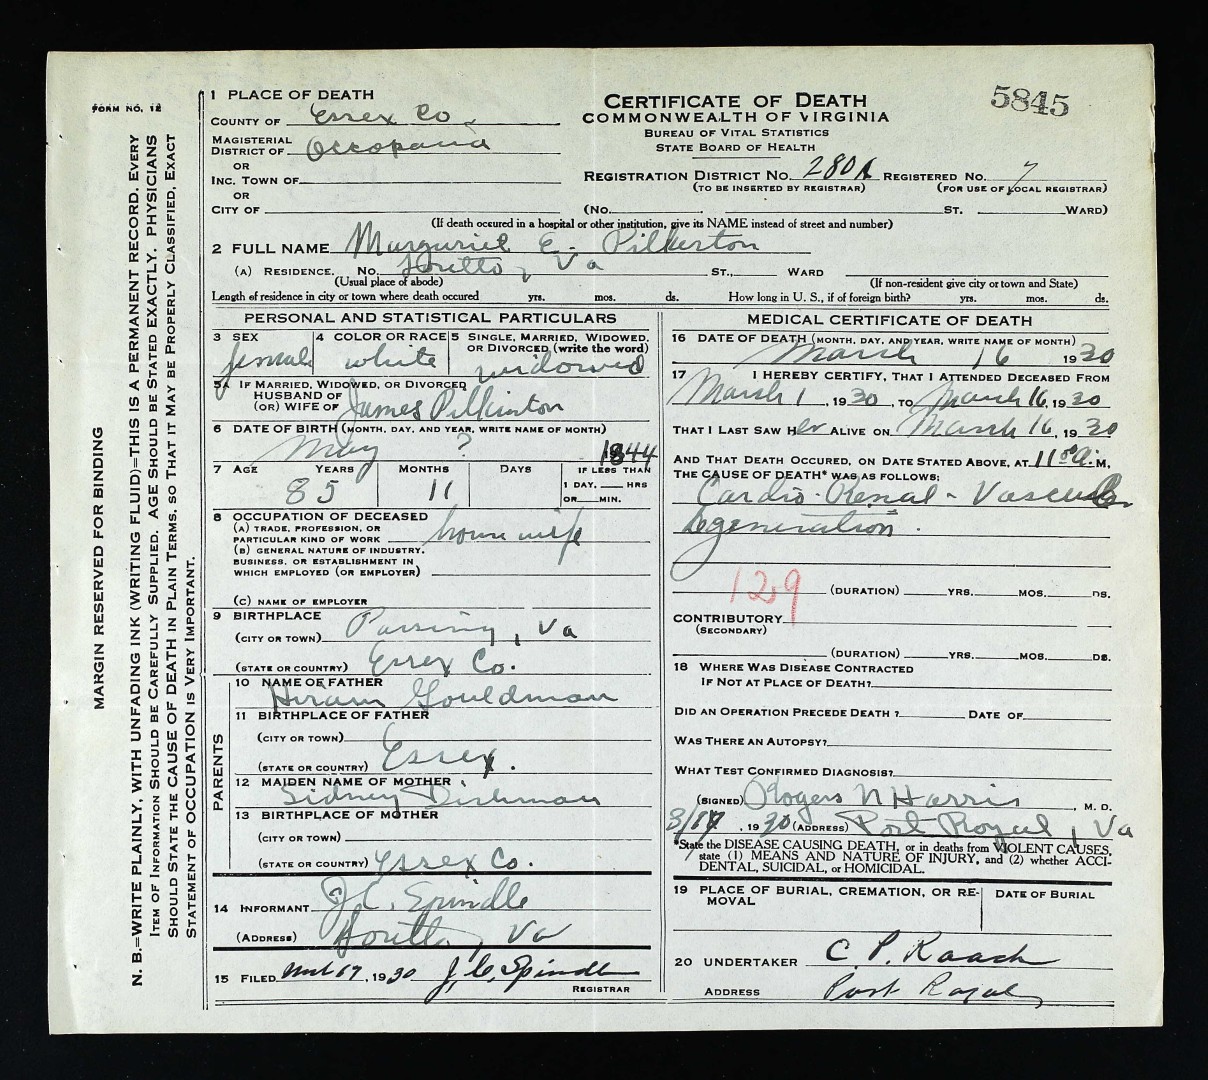 FORM NO. 12
MARGIN RESERVED FOR BINDING
N. B.=WRITE PLAINLY, WITH UNFADING INK (WRITING FLUID)=THIS IS A PERMANENT RECORD. EVERY
ITEM OF INFORMATION SHOULD BE CAREFULLY SUPPLIED. AGE SHOULD BE STATED EXACTLY. PHYSICIANS
SHOULD STATE THE CAUSE OF DEATH IN PLAIN TERMS, SO THAT IT MAY BE PROPERLY CLASSIFIED. EXACT
STATEMENT OF OCCUPATION IS VERY IMPORTANT.
1 PLACE OF DEATH
COUNTY OF Essex Co.
MAGISTERIAL
DISTRICT OF Occopacia
OR
INC. TOWN OF
OR
CITY OF
CERTIFICATE OF DEATH
COMMONWEALTH OF VIRGINIA
BUREAU OF VITAL STATISTICS
STATE BOARD OF HEALTH
5845
REGISTRATION DISTRICT NO. 280A REGISTERED NO. 7
(TO BE INSERTED BY REGISTRAR) (FOR USE OF LOCAL REGISTRAR)
(No. ST. WARD)
(If death occured in a hospital or other institution, give its NAME instead of street and number)
2 FULL NAME E. Pilkerton
(A) RESIDENCE. No. Loretto, Va ST., WARD
(Usual place of abode) (If non-resident give city or town and State)
Length of residence in city or town where death occured yrs. mos. ds. How long in U. S., if of foreign birth? yrs. mos. ds.
PERSONAL AND STATISTICAL PARTICULARS
3 SEX 4 COLOR OR RACE 5 SINGLE, MARRIED, WIDOWED, OR DIVORCED (write the word)
female white widowed
5A IF MARRIED, WIDOWED, OR DIVORCED
HUSBAND OF
(OR) WIFE OF James Pilkinton
6 DATE OF BIRTH (MONTH, DAY, AND YEAR, WRITE NAME OF MONTH)
May ? 1844
7 AGE YEARS MONTHS DAYS IF LESS THAN
85 11 1 DAY, HRS
OR MIN.
8 OCCUPATION OF DECEASED
(A) TRADE, PROFESSION, OR
PARTICULAR KIND OF WORK housewife
(B) GENERAL NATURE OF INDUSTRY,
BUSINESS, OR ESTABLISHMENT IN
WHICH EMPLOYED (OR EMPLOYER)
(C) NAME OF EMPLOYER
9 BIRTHPLACE
(CITY OR TOWN) Passing, Va
(STATE OR COUNTRY) Essex Co.
PARENTS
10 NAME OF FATHER
Hiram Gouldman
11 BIRTHPLACE OF FATHER
(CITY OR TOWN)
(STATE OR COUNTRY) Essex.
12 MAIDEN NAME OF MOTHER
Sidney Dishman
13 BIRTHPLACE OF MOTHER
(CITY OR TOWN)
(STATE OR COUNTRY) Essex Co.
14 INFORMANT J. C. Spindle
(ADDRESS) Loretto, Va
15 FILED 17, 1930 J. C. Spindle
REGISTRAR
MEDICAL CERTIFICATE OF DEATH
16 DATE OF DEATH (MONTH, DAY, AND YEAR, WRITE NAME OF MONTH)
March 16 1930
17 I HEREBY CERTIFY, THAT I ATTENDED DECEASED FROM
March 1, 1930, TO March 16, 1930
THAT I LAST SAW Her ALIVE ON March 16, 1930
AND THAT DEATH OCCURED, ON DATE STATED ABOVE, AT 11 00 A. M.
THE CAUSE OF DEATH* WAS AS FOLLOWS:
Cardio-Renal-Vascular
Degeneration.
129
(DURATION) YRS. MOS. DS.
CONTRIBUTORY
(SECONDARY)
(DURATION) YRS. MOS. DS.
18 WHERE WAS DISEASE CONTRACTED
IF NOT AT PLACE OF DEATH?
DID AN OPERATION PRECEDE DEATH? DATE OF
WAS THERE AN AUTOPSY?
WHAT TEST CONFIRMED DIAGNOSIS?
(SIGNED) Rogers N Harris, M. D.
3/17, 1930 (ADDRESS) Port Royal, Va
*State the DISEASE CAUSING DEATH, or in deaths from VIOLENT CAUSES,
state (1) MEANS AND NATURE OF INJURY, and (2) whether ACCI-
DENTAL, SUICIDAL, or HOMICIDAL.
19 PLACE OF BURIAL, CREMATION, OR RE- DATE OF BURIAL
MOVAL
20 UNDERTAKER C. P. Roach
ADDRESS Port Royal